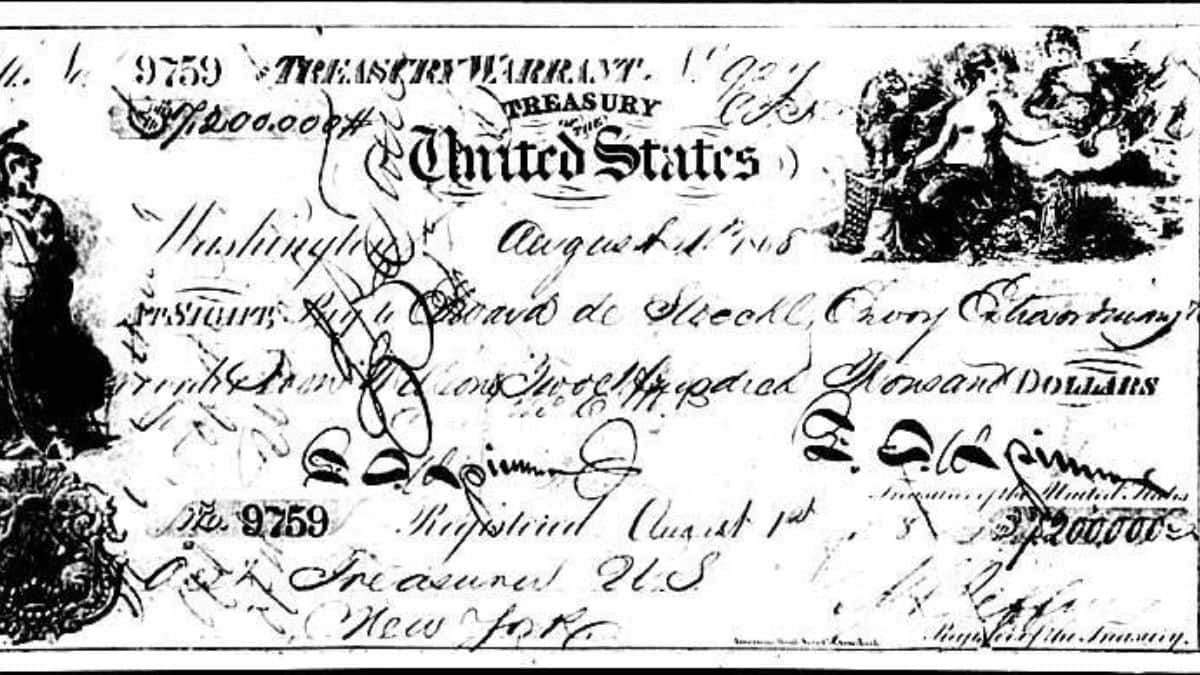 No. 9759 TREASURY WARRANT. No. 927
$7,200.000 TREASURY
OF THE
United States
Washington August 1st 1868
AT SIGHT, Pay to Edward de Stoeckl, Envoy Extraordinary
Seven Million Two Hundred Thousand DOLLARS
F. E. Spinner F. E. Spinner
Treasurer of the United States
No. 9759 Registered August 1st $7,200.000
Asst. Treasurer U.S.
New York
Register of the Treasury.